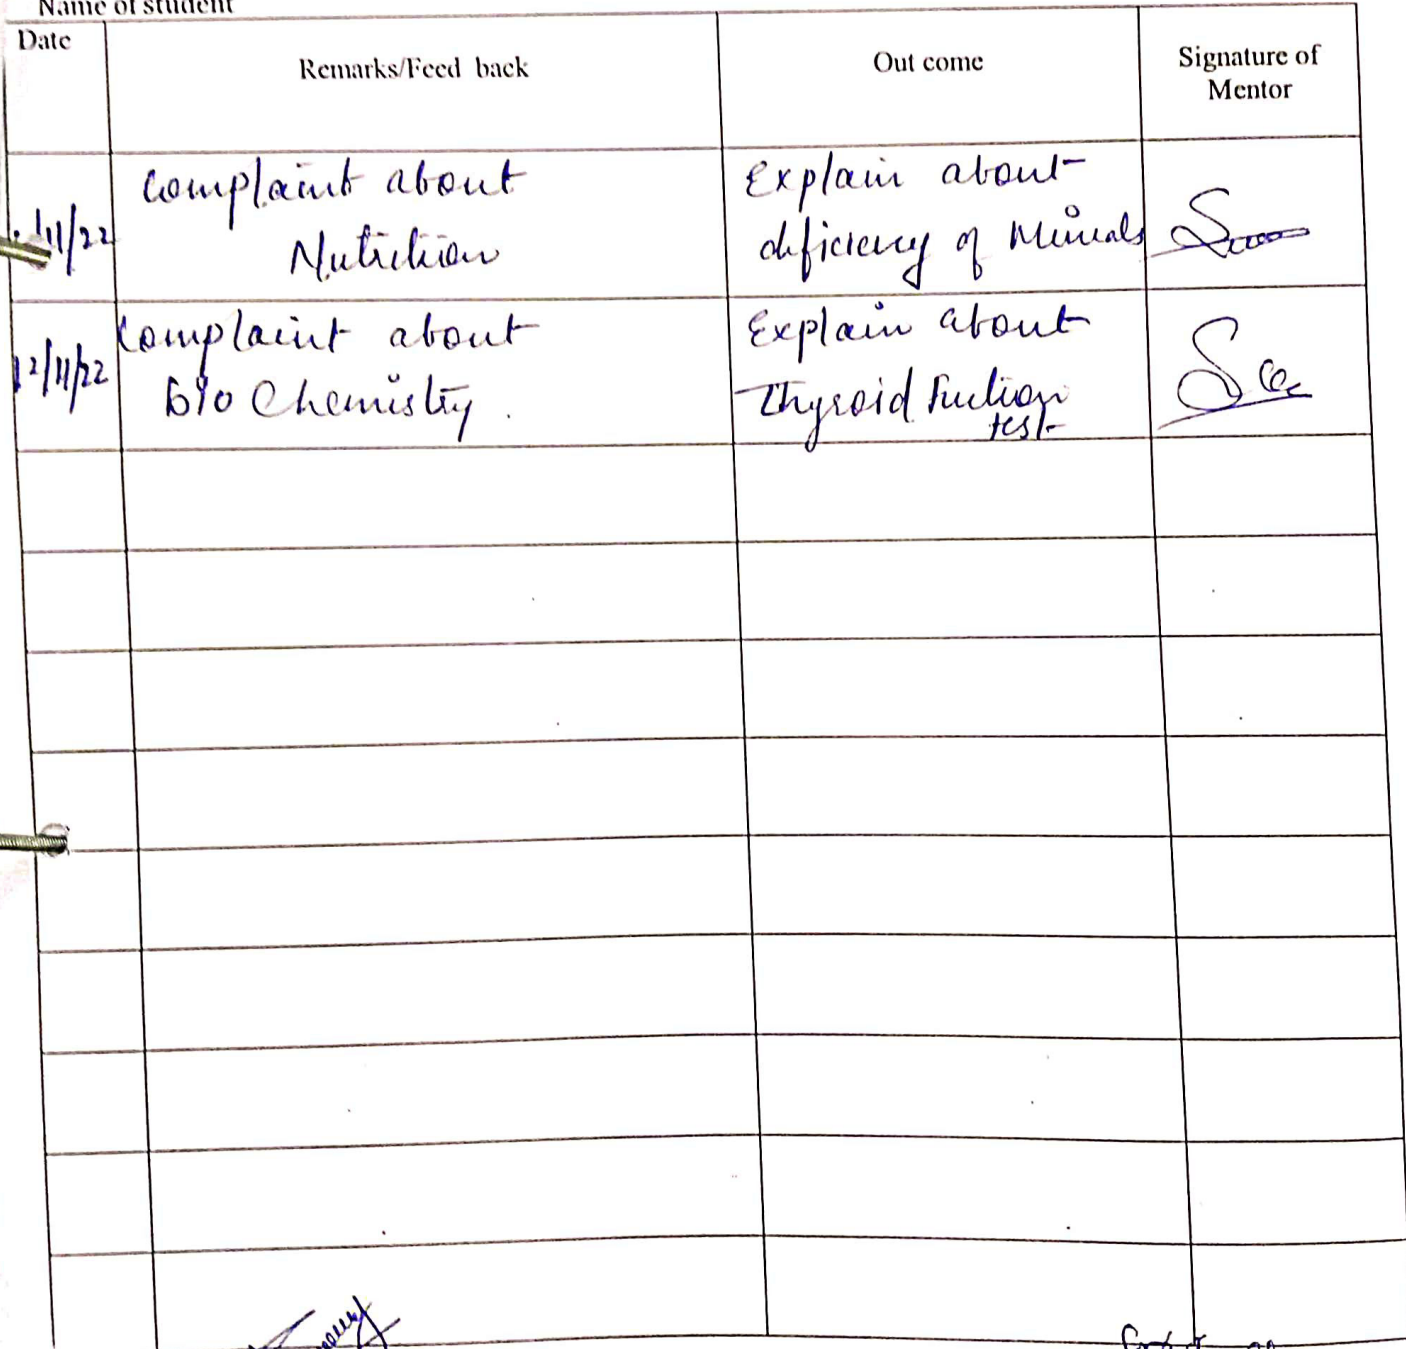 Name of student
Date
Remarks/Feed back
Out come
Signature of
Mentor
/11/22
Complaint about
Nutrition
Explain about
deficiency of Minerals
12/11/22
Complaint about
bio Chemistry.
Explain about
Thyroid Fuction
test